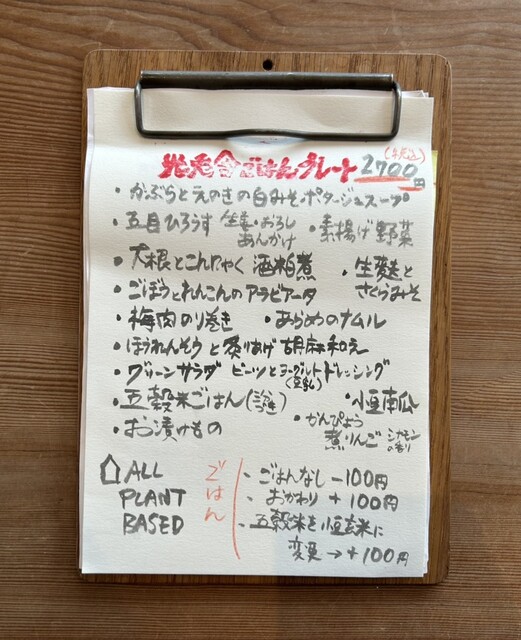 光兎舎ごはんプレート 2700円 (税込)
・かぶらとえのきの白みそポタージュスープ
・五目ひろうす 生姜・おろしあんかけ ・素揚げ野菜
・大根とこんにゃく 酒粕煮 ・生麩とさくらみそ
・ごぼうとれんこんのアラビアータ
・梅肉のり巻き ・あらめのナムル
・ほうれんそうと炙りあげ 胡麻和え
・グリーンサラダ ビーツとヨーグルト(豆乳)ドレッシング
・五穀米ごはん ・小豆南瓜
・お漬けもの ・かんぴょう煮りんご シナモンの香り
ALL
PLANT
BASED
ごはん
・ごはんなし -100円
・おかわり +100円
・五穀米を小豆玄米に
変更→+100円